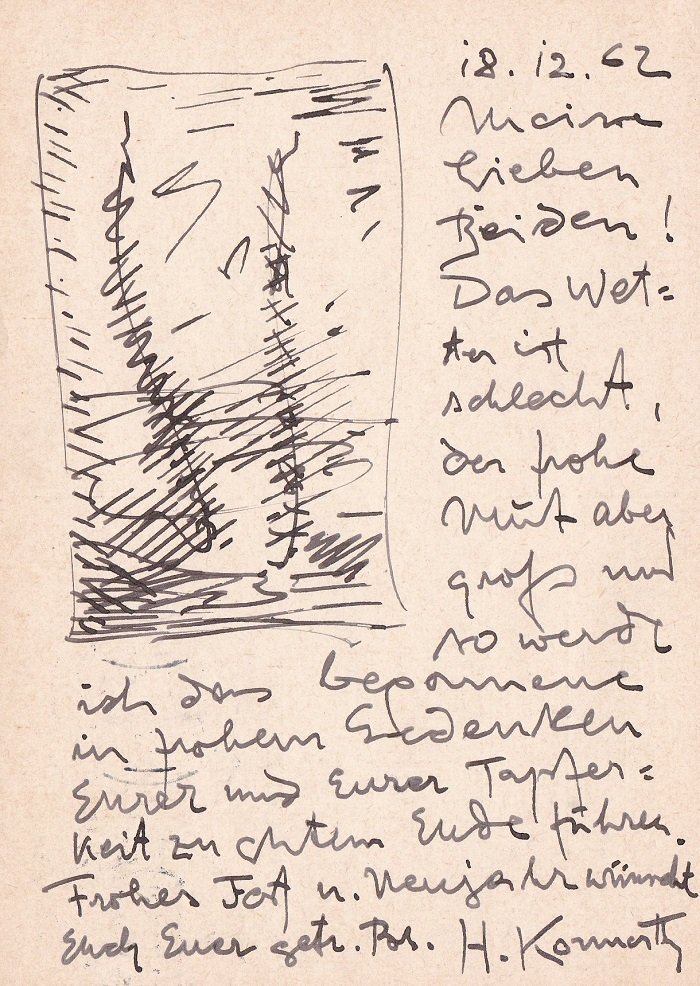 18.12.62
Meine
lieben
Beiden!
Das Wet=
ter ist
schlecht,
der frohe
Mut aber
groß und
so werde
ich das begonnene
in frohem Gedenken
Eurer und Eurer Tapfer=
keit zu gutem Ende führen.
Frohes Fest u. Neujahr wünscht
Euch Euer getr.
H.